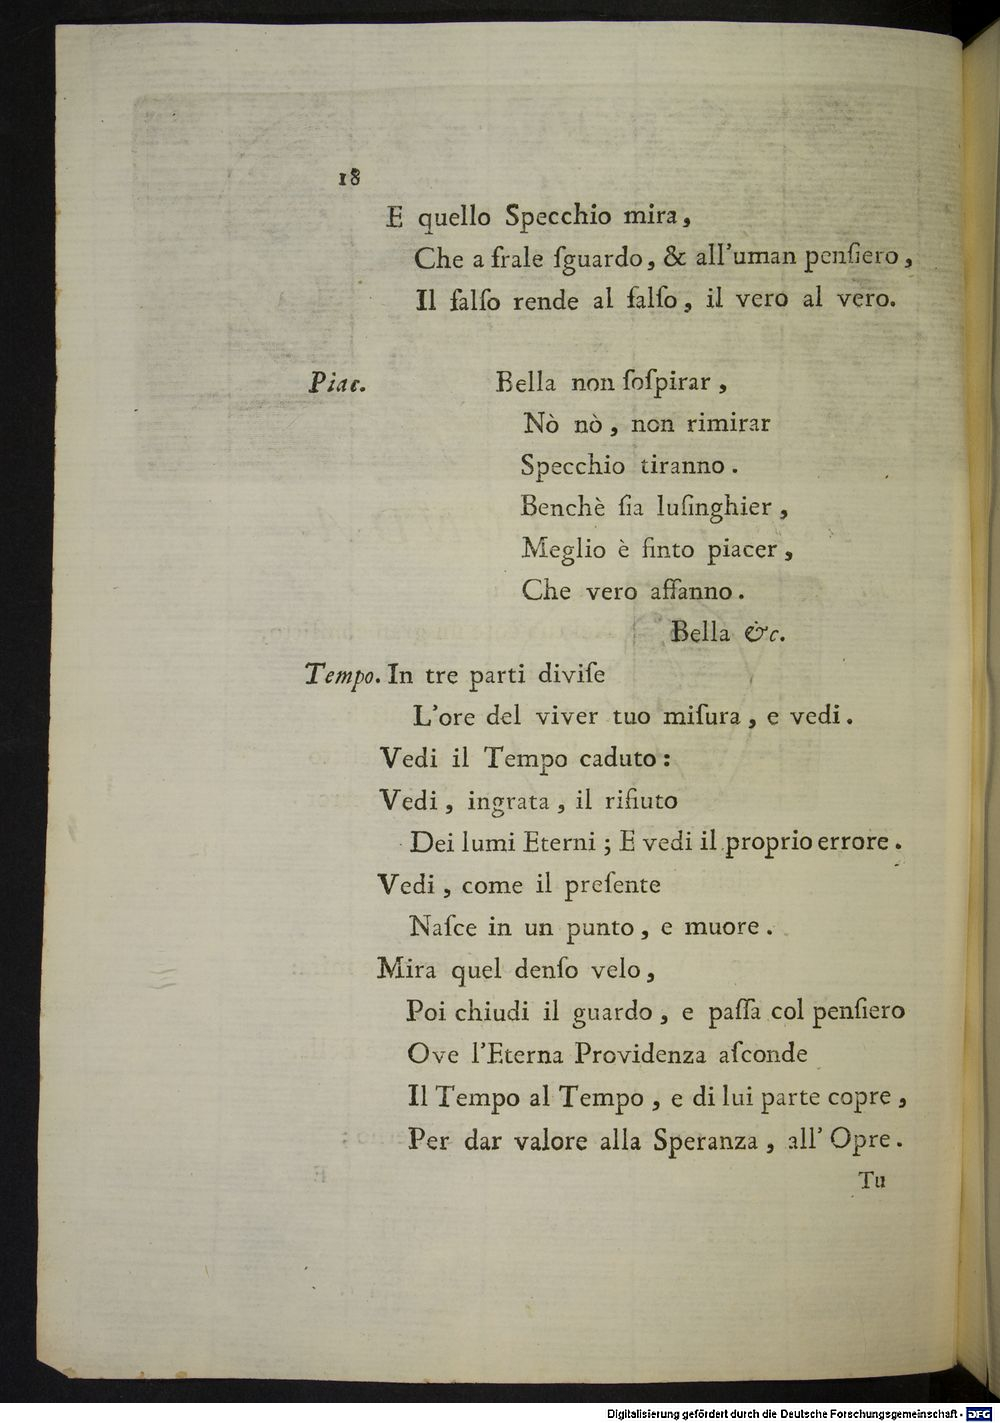 18
E quello Specchio mira,
Che a frale ſguardo, & all'uman penſiero,
Il falſo rende al falſo, il vero al vero.
Piac. Bella non ſoſpirar,
Nò nò, non rimirar
Specchio tiranno.
Benchè ſia luſinghier,
Meglio è finto piacer,
Che vero affanno.
Bella &c.
Tempo. In tre parti diviſe
L'ore del viver tuo miſura, e vedi.
Vedi il Tempo caduto:
Vedi, ingrata, il rifiuto
Dei lumi Eterni; E vedi il proprio errore.
Vedi, come il preſente
Naſce in un punto, e muore.
Mira quel denſo velo,
Poi chiudi il guardo, e paſſa col penſiero
Ove l'Eterna Providenza aſconde
Il Tempo al Tempo, e di lui parte copre,
Per dar valore alla Speranza, all' Opre.
Tu
Digitalisierung gefördert durch die Deutsche Forschungsgemeinschaft - DFG